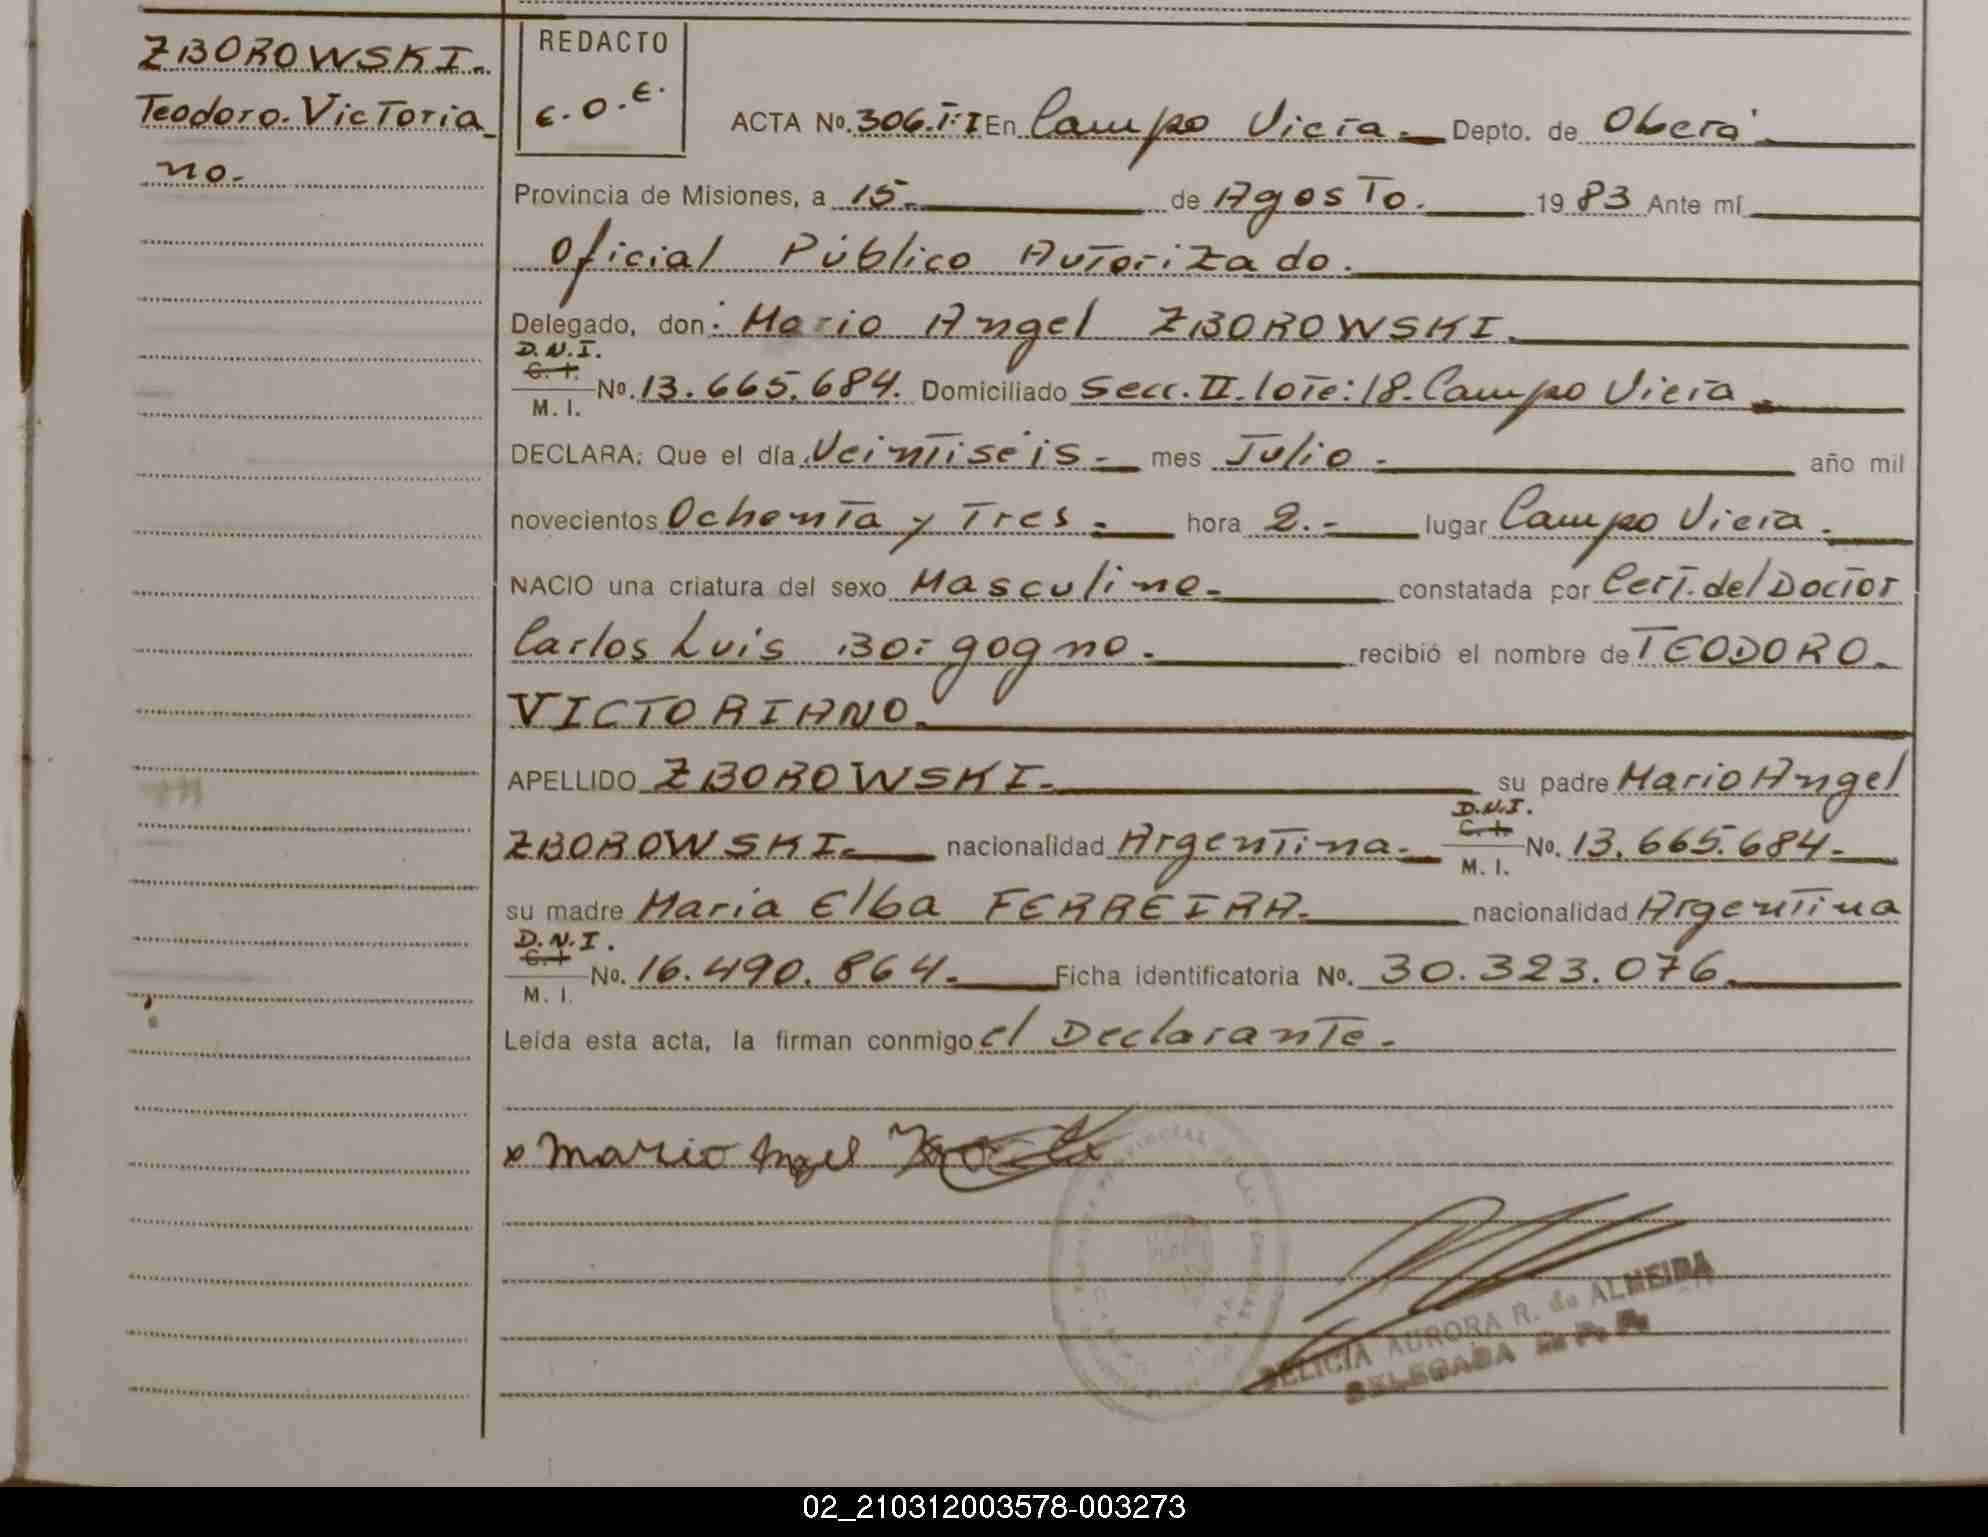 ZBOROWSKI.
Teodoro. Victoria
no.
REDACTO
E.O.E.
ACTA Nº. 306.T:I En Campo Viera. Depto. de Oberá
Provincia de Misiones, a 15. de Agosto. 1983 Ante mí
Oficial Público Autorizado.
Delegado, don: Mario Angel ZBOROWSKI.
D.N.I.
C. I.
M. I.
Nº. 13.665.684. Domiciliado Secc. II. lote: 18. Campo Viera
DECLARA: Que el día Veintiséis. mes Julio. año mil
novecientos Ochenta y Tres. hora 2. lugar Campo Viera.
NACIO una criatura del sexo Masculino. constatada por Cert. del Doctor
Carlos Luis Borgogno. recibió el nombre de TEODORO
VICTORIANO.
APELLIDO ZBOROWSKI. su padre Mario Angel
D.N.I.
C. I.
M. I.
ZBOROWSKI. nacionalidad Argentina. Nº. 13.665.684.
su madre Maria Elba FERREIRA. nacionalidad Argentina
D.N.I.
C. I.
M. I.
Nº. 16.490.864. Ficha identificatoria Nº. 30.323.076.
Leída esta acta, la firman conmigo el Declarante.
x Mario Angel
DELICIA AURORA R. de ALMEIDA
DELEGADA
02_210312003578-003273